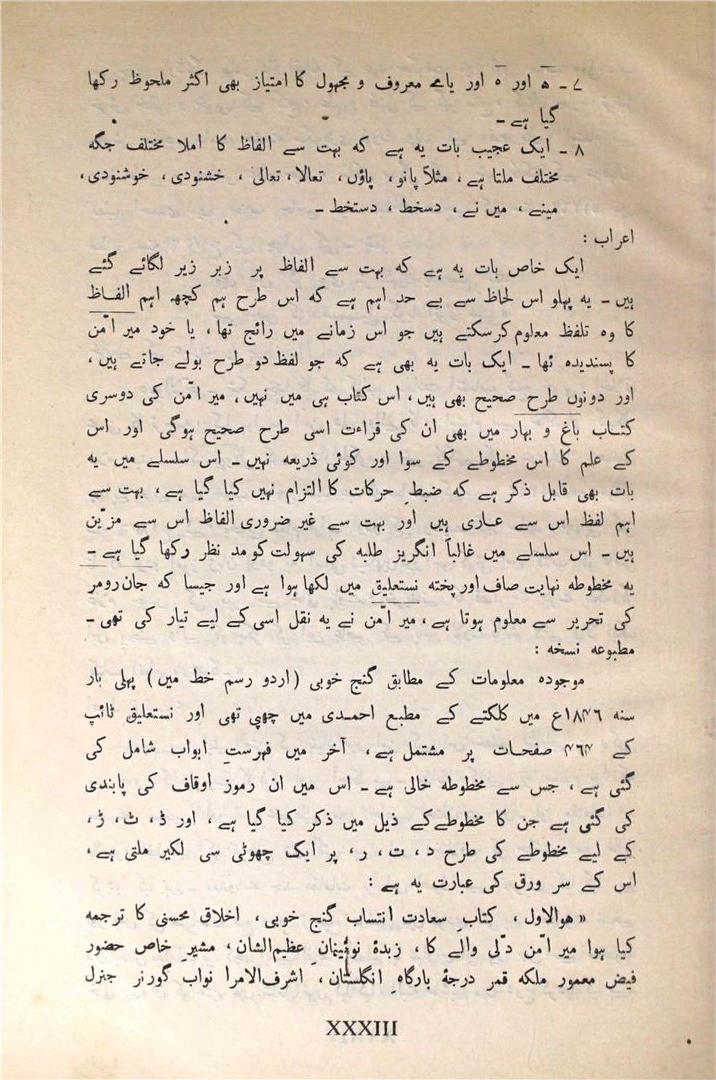 ۷ ـ ھ اور ہ اور یاے معروف و مجہول کا امتیاز بھی اکثر ملحوظ رکھا
گیا ہے ـ
۸ ـ ایک عجیب بات یہ ہے کہ بہت سے الفاظ کا املا مختلف جگہ
مختلف ملتا ہے ، مثلاً پانو، پاؤں، تعالا، تعالیٰ ، خشنودی، خوشنودی،
مینے ، میں نے ، دسخط ، دستخط ـ
اعراب :
ایک خاص بات یہ ہے کہ بہت سے الفاظ پر زبر زیر لگائے گئے
ہیں ـ یہ پہلو اس لحاظ سے بے حد اہم ہے کہ اس طرح ہم کچھ اہم الفاظ
کا وہ تلفظ معلوم کرسکتے ہیں جو اس زمانے میں رائج تھا ، یا خود میر امّن
کا پسندیدہ تھا ـ ایک بات یہ بھی ہے کہ جو لفظ دو طرح بولے جاتے ہیں ،
اور دونوں طرح صحیح بھی ہیں ، اس کتاب ہی میں نہیں ، میر امّن کی دوسری
کتاب باغ و بہار میں بھی ان کی قراءت اسی طرح صحیح ہوگی اور اس
کے علم کا اس مخطوطے کے سوا اور کوئی ذریعہ نہیں ـ اس سلسلے میں یہ
بات بھی قابل ذکر ہے کہ ضبطِ حرکات کا التزام نہیں کیا گیا ہے ، بہت سے
اہم لفظ اس سے عاری ہیں اور بہت سے غیر ضروری الفاظ اس سے مزیّن
ہیں ـ اس سلسلے میں غالباً انگریز طلبہ کی سہولت کو مد نظر رکھا گیا ہے ـ
یہ مخطوطہ نہایت صاف اور پختہ نستعلیق میں لکھا ہوا ہے اور جیسا کہ جان رومر
کی تحریر سے معلوم ہوتا ہے ، میر امّن نے یہ نقل اسی کے لیے تیار کی تھی ـ
مطبوعہ نسخہ :
موجودہ معلومات کے مطابق گنج خوبی (اردو رسم خط میں) پہلی بار
سنہ ۱۸۴۶ع میں کلکتے کے مطبع احمدی میں چھپی تھی اور نستعلیق ٹائپ
کے ۴۶۴ صفحات پر مشتمل ہے ، آخر میں فہرستِ ابواب شامل کی
گئی ہے ، جس سے مخطوطہ خالی ہے ـ اس میں ان رموز اوقاف کی پابندی
کی گئی ہے جن کا مخطوطے کے ذیل میں ذکر کیا گیا ہے ، اور ڈ ، ٹ ، ڑ ،
کے لیے مخطوطے کی طرح د ، ت ، ر ، پر ایک چھوٹی سی لکیر ملتی ہے ،
اس کے سر ورق کی عبارت یہ ہے :
«هوالاول ، کتابِ سعادت انتساب گنج خوبی ، اخلاق محسنی کا ترجمہ
کیا ہوا میر امّن دلّی والے کا ، زبدۂ نوئینانِ عظیم الشان ، مشیرِ خاص حضور
فیض معمور ملکہ قمر درجۂ بارگاہِ انگلستان ، اشرف الامرا نواب گورنر جنرل
XXXIII